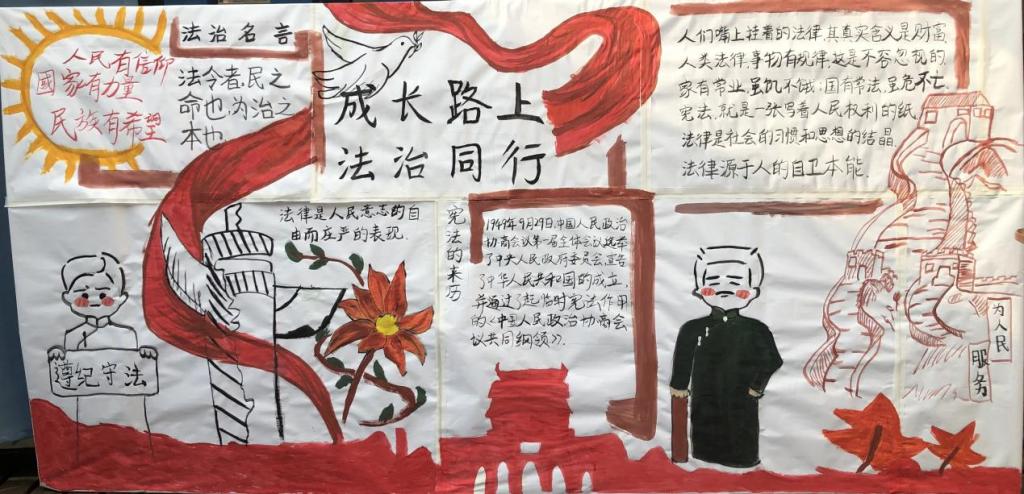 人民有信仰
國家有力量
民族有希望
法治名言
法令者,民之
命也,为治之
本也
成长路上
法治同行
人们嘴上挂着的法律,其真实含义是财富
人类法律,事物有规律,这是不容忽视的
家有常业,虽饥不饿;国有常法,虽危不亡
宪法,就是一张写着人民权利的纸
法律是社会的习惯和思想的结晶
法律源于人的自卫本能.
法律是人民意志的自
由而庄严的表现.
遵纪守法
宪法的来历
1949年9月29日,中国人民政治
协商会议第一届全体会议选举
了中央人民政府委员会,宣告
了中华人民共和国的成立,
并通过了起临时宪法作用
的《中国人民政治协商会
议共同纲领》.
为人民
服务